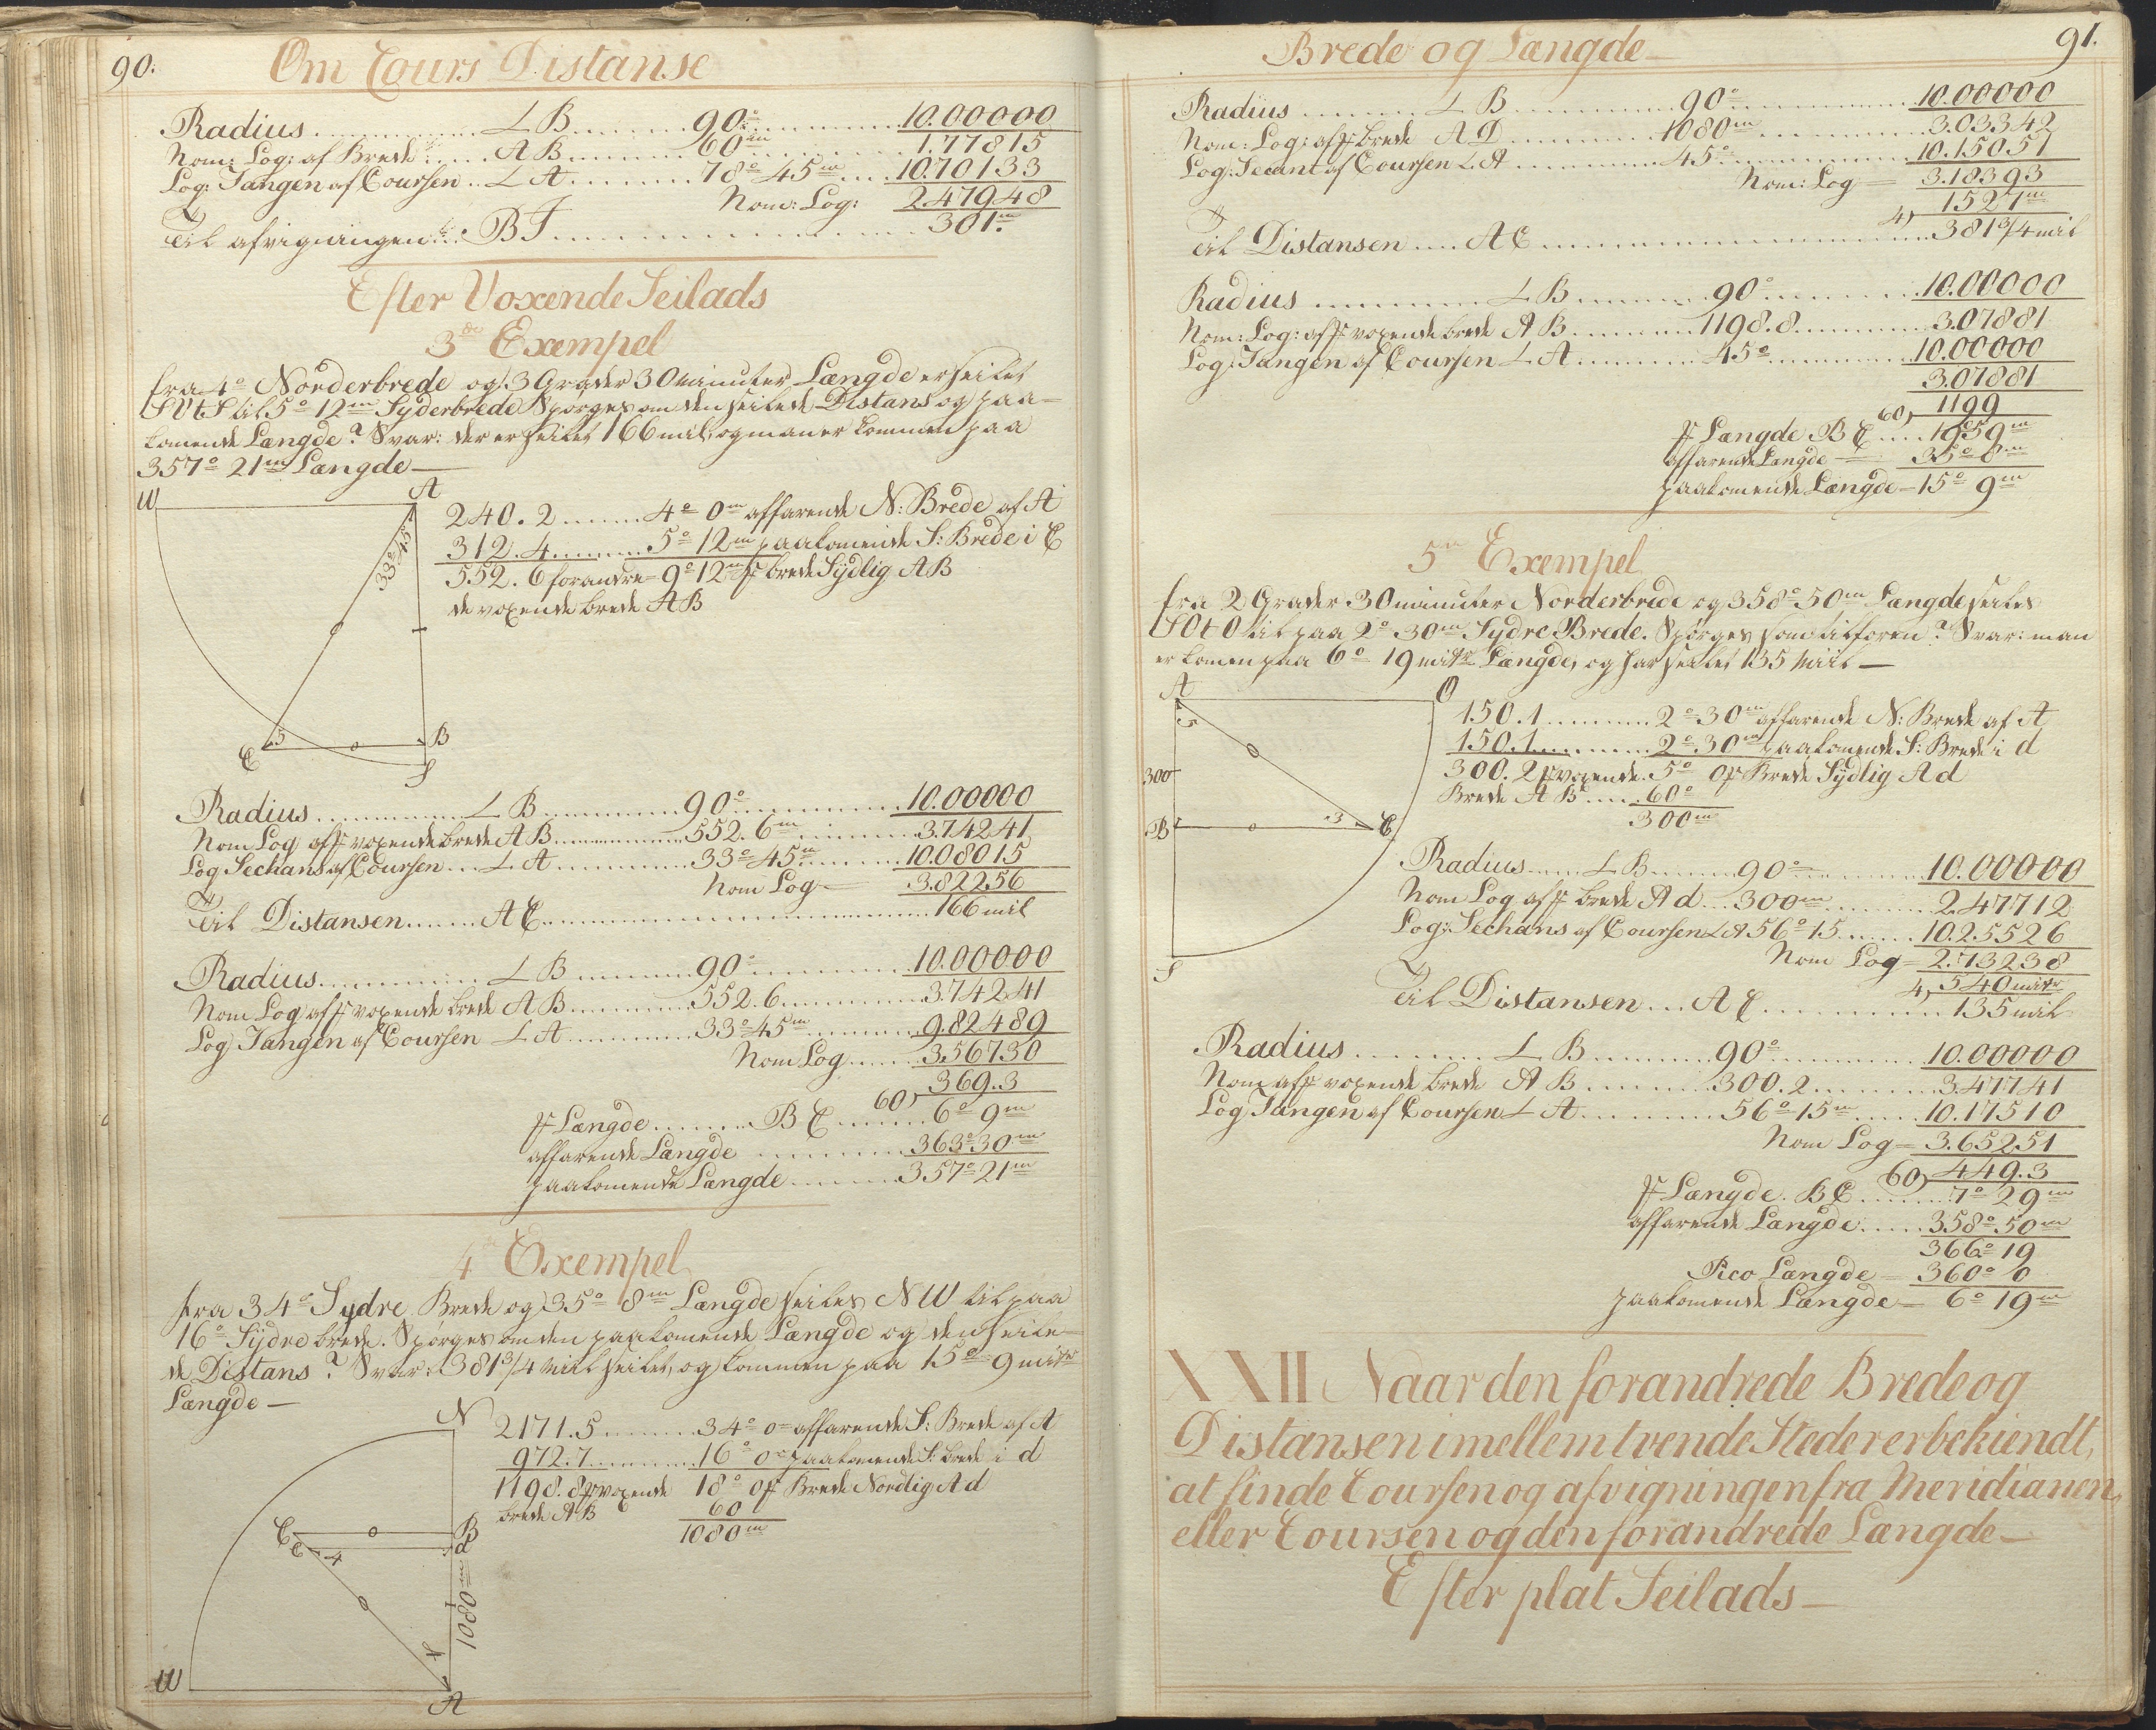 90.
Om Cours Distanse
Radius ... L B ... 90° ... 10.00000
Nom: Log: af Brede ... A B ... 60m ... 1.77815
Log: Tangen af Coursen .. L A ... 78° 45m ... 10.70133
Nom: Log: 2.47948
Til afvigningen ... B F ... 301.m
Efter Voxende Seilads
3de Exempel
fra 4° Norderbrede og 3 Grader 30 Minuter Længde er seilet
SVtS til 5° 12m Syderbrede Spørges om den seilede Distans og paa=
komende Længde? Svar: der er seilet 166 mil, og man er kommen paa
357° 21m Længde —
W A
33° 45
240.2 ... 4° 0m affarende N: Brede af A
312.4 ... 5° 12m paakomende S: Brede i C
552.6 forandre= 9° 12m f brede Sÿdlig AB
de voxende brede AB
C 5 B
S
Radius ... L B ... 90° ... 10.00000
Nom Log af f voxende brede A B ... 552.6m ... 3.74241
Log Sechans af Coursen ... L A ... 33° 45m ... 10.08015
Nom Log = 3.82256
Til Distansen ... A C ... 166 mil
Radius ... L B ... 90° ... 10.00000
Nom Log af f voxende brede A B ... 552.6 ... 3.74241
Log Tangen af Coursen L A ... 33° 45m ... 9.82489
Nom Log ... 3.56730
60) 369.3
f Længde ... B C ... 6° 9m
affarende Længde ... 363° 30m
paakomende Længde ... 357° 21m
4de Exempel
fra 34° Sydre Brede og 35° 8m Længde seiles NW til paa
16° Sÿdre brede. Spørges om den paakomende Længde og den seile=
de Distans? Svar: 381 3/4 Miil seilet, og kommen paa 15° 9 mitr
Længde —
N
2171.5 ... 34° 0= affarende S: Brede af A
972.7 ... 16° 0= paakomende S: brede i d
1198.8 f voxende 18° 0 f Brede Nordlig A d
brede AB 60
1080m
C B
c 4 d
1080m
4
W A
91.
Brede og Længde —
Radius ... L B ... 90° ... 10.00000
Nom: Log: af f brede A D ... 1080m ... 3.03342
Log: Secant af Coursen L A ... 45° ... 10.15051
Nom: Log = 3.18393
4) 1527m
Til Distansen ... A C ... 381 3/4 mil
Radius ... L B ... 90° ... 10.00000
Nom: Log: af f voxende brede A B ... 1198.8 ... 3.07881
Log: Tangen af Coursen L A ... 45° ... 10.00000
3.07881
60) 1199
f Længde B C ... 19° 59m
affarende Længde — 35° 8m
paakomende Længde — 15° 9m
5te Exempel
fra 2 Grader 30 minuter Norderbrede og 358° 50m Længde seiles
SOtO til paa 2° 30m Sydre Brede. Spørges som tilforen? Svar: man
er komen paa 6° 19 mitr Længde, og har seilet 135 Miil —
A O
5
300
B 3 C
S
150.1 ... 2° 30m affarende N: Brede af A
150.1 ... 2° 30m paakomende S: Brede i d
300.2 f voxende. 5° 0 f Brede Sÿdlig A d
Brede A B ... 60°
300m
Radius ... L B ... 90° ... 10.00000
Nom Log af f brede A d ... 300m ... 2.47712
Log: Sechans af Coursen L A 56° 15 ... 10.25526
Nom Log = 2.73238
4) 540 mitr
Til Distansen ... A C ... 135 mil
Radius ... L B ... 90° ... 10.00000
Nom af f voxende brede A B ... 300.2 ... 3.47741
Log Tangen af Coursen L A ... 56° 15m ... 10.17510
Nom Log = 3.65251
60) 449.3
f Længde. B C ... 7° 29m
affarende Længde ... 358° 50m
366° 19
Pico Længde = 360° 0
paakomende Længde — 6° 19m
XXII Naar den forandrede Brede og
Distansen imellem tvende Steder er bekiendt,
at finde Coursen og afvigningen fra Meridianen,
eller Coursen og den forandrede Længde —
Efter plat Seilads —